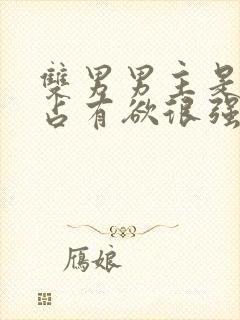 雙男男主是
占有欲很强
鴈娘